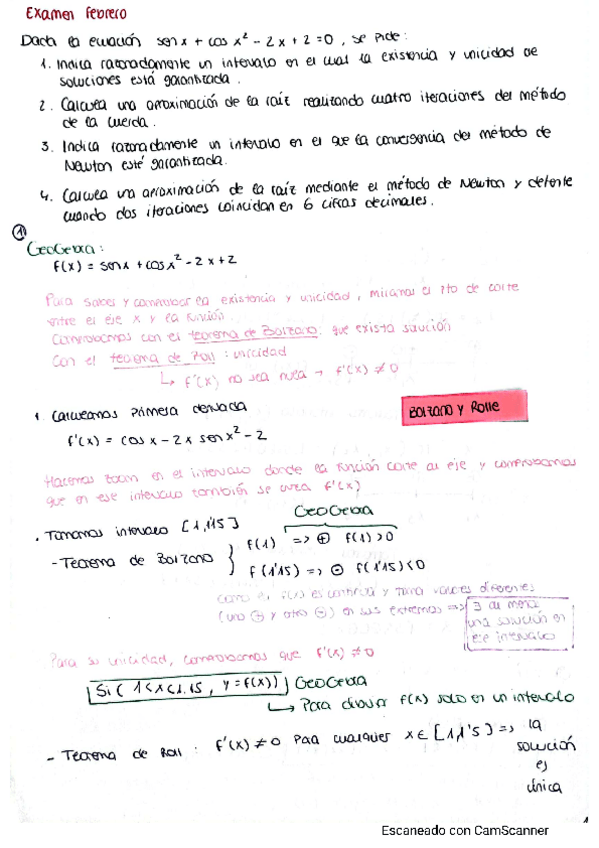 Examen Febrero
Dada la ecuación sen x + cos x² - 2x + 2 = 0, se pide:
1. Indica razonadamente un intervalo en el cual la existencia y unicidad de
soluciones está garantizada.
2. Calcula una aproximación de la raíz realizando cuatro iteraciones del método
de la cuerda.
3. Indica razonadamente un intervalo en el que la convergencia del método de
Newton esté garantizada.
4. Calcula una aproximación de la raíz mediante el método de Newton y detente
cuando dos iteraciones coincidan en 6 cifras decimales.
①
GeoGebra:
f(x) = sen x + cos x² - 2x + 2
Para saber y comprobar la existencia y unicidad, miramos el pto de corte
entre el eje x y la función.
Comprobamos con el teorema de Bolzano: que exista solución
Con el teorema de Roll: unicidad
↳ f'(x) no sea nula → f'(x) ≠ 0
1. Calculamos primera derivada
Bolzano y Rolle
f'(x) = cos x - 2x sen x² - 2
Hacemos zoom en el intervalo donde la función corte al eje y comprobamos
que en ese intervalo también se f'(x)
GeoGebra
. Tomamos intervalo [1,1'15]
- Teorema de Bolzano } f(1) => ⊕ f(1)>0
f(1'15) => ⊖ f(1'15)<0
como el f(x) es continua y toma valores diferentes
(uno ⊕ y otro ⊖) en sus extremos => ∃ al menos
una solución en
ese intervalo
Para su unicidad, comprobamos que f'(x) ≠ 0
Si( 1<x<1.15, y=f(x)) GeoGebra
↳ Para dibujar f(x) solo en un intervalo
- Teorema de Roll : f'(x) ≠ 0 para cualquier x ∈ [1,1'5] => la
solución
es
única
1
Escaneado con CamScanner